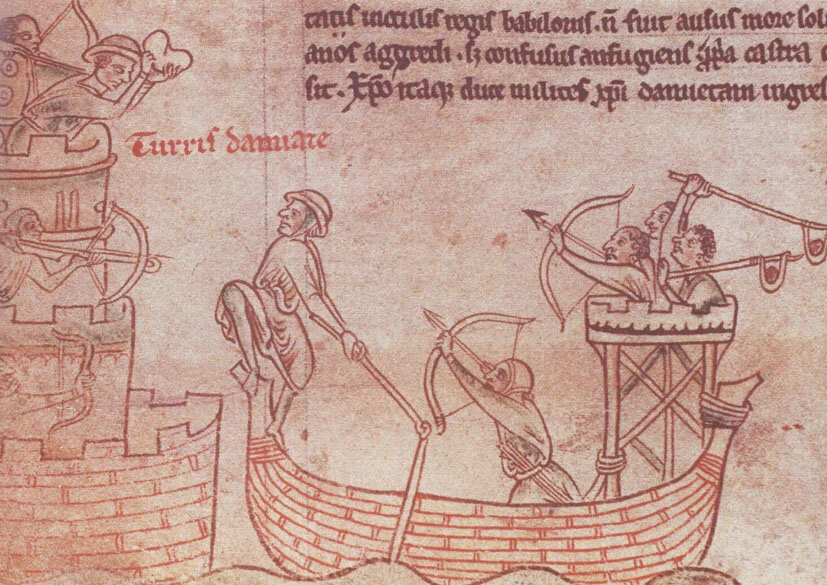 tatis incolis regis babilonis. ñ fuit ausus more sol
anos aggredi. sꝫ confusus aufugiens
sit. Xp̄o itaqꝫ duce milites xp̄i damietam ingres
Turris damiate